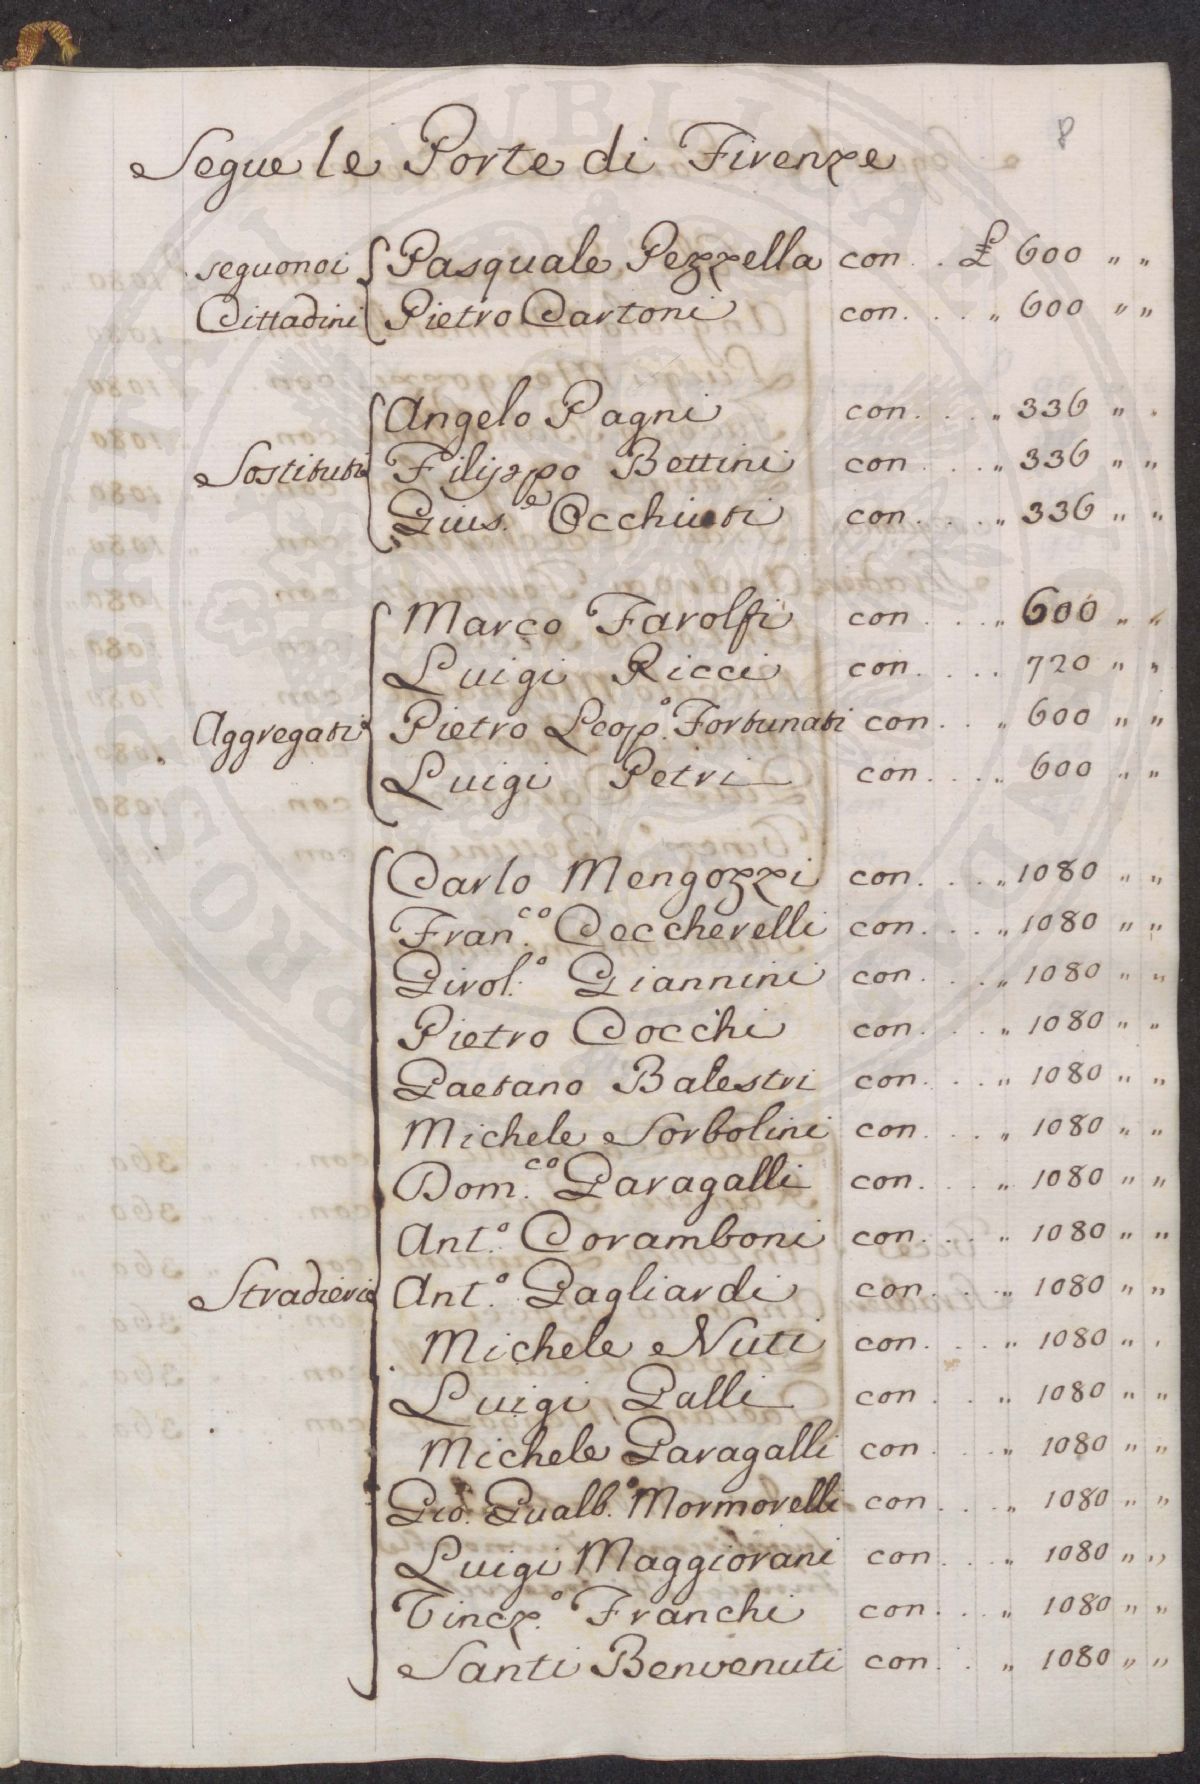 8
Segue le Porte di Firenze
seguono i Pasquale Pezzella con . . £ 600 " "
Cittadini Pietro Cartoni con . . . " 600 " "
Angelo Pagni con . . . " 336 " "
Sostituti Filippo Bettini con . . . " 336 " "
Gius.e Occhiuti con . . . " 336 " "
Marco Farolfi con . . . " 600 " "
Luigi Ricci con . . . . 720 " "
Aggregati Pietro Leop.o Fortunati con . . " 600 " "
Luigi Petri con . . . " 600 " "
Carlo Mengozzi con . . . " 1080 " "
Fran.co Ceccherelli con . . . " 1080 " "
Girol.o Giannini con . . . " 1080 " "
Pietro Cocchi con . . . " 1080 " "
Gaetano Balestri con . . . " 1080 " "
Michele Sorbolini con . . . " 1080 " "
Dom.co Garagalli con . . . " 1080 " "
Ant.o Coramboni con . . . " 1080 " "
Stradieri Ant.o Gagliardi con . . . " 1080 " "
Michele Nuti con . . . " 1080 " "
Luigi Galli con . . . " 1080 " "
Michele Garagalli con . . . " 1080 " "
Gio. Gualb.o Mormorelli con . . . " 1080 " "
Luigi Maggiorani con . . . " 1080 " "
Vincz.o Franchi con . . . " 1080 " "
Santi Benvenuti con . . . " 1080 " "